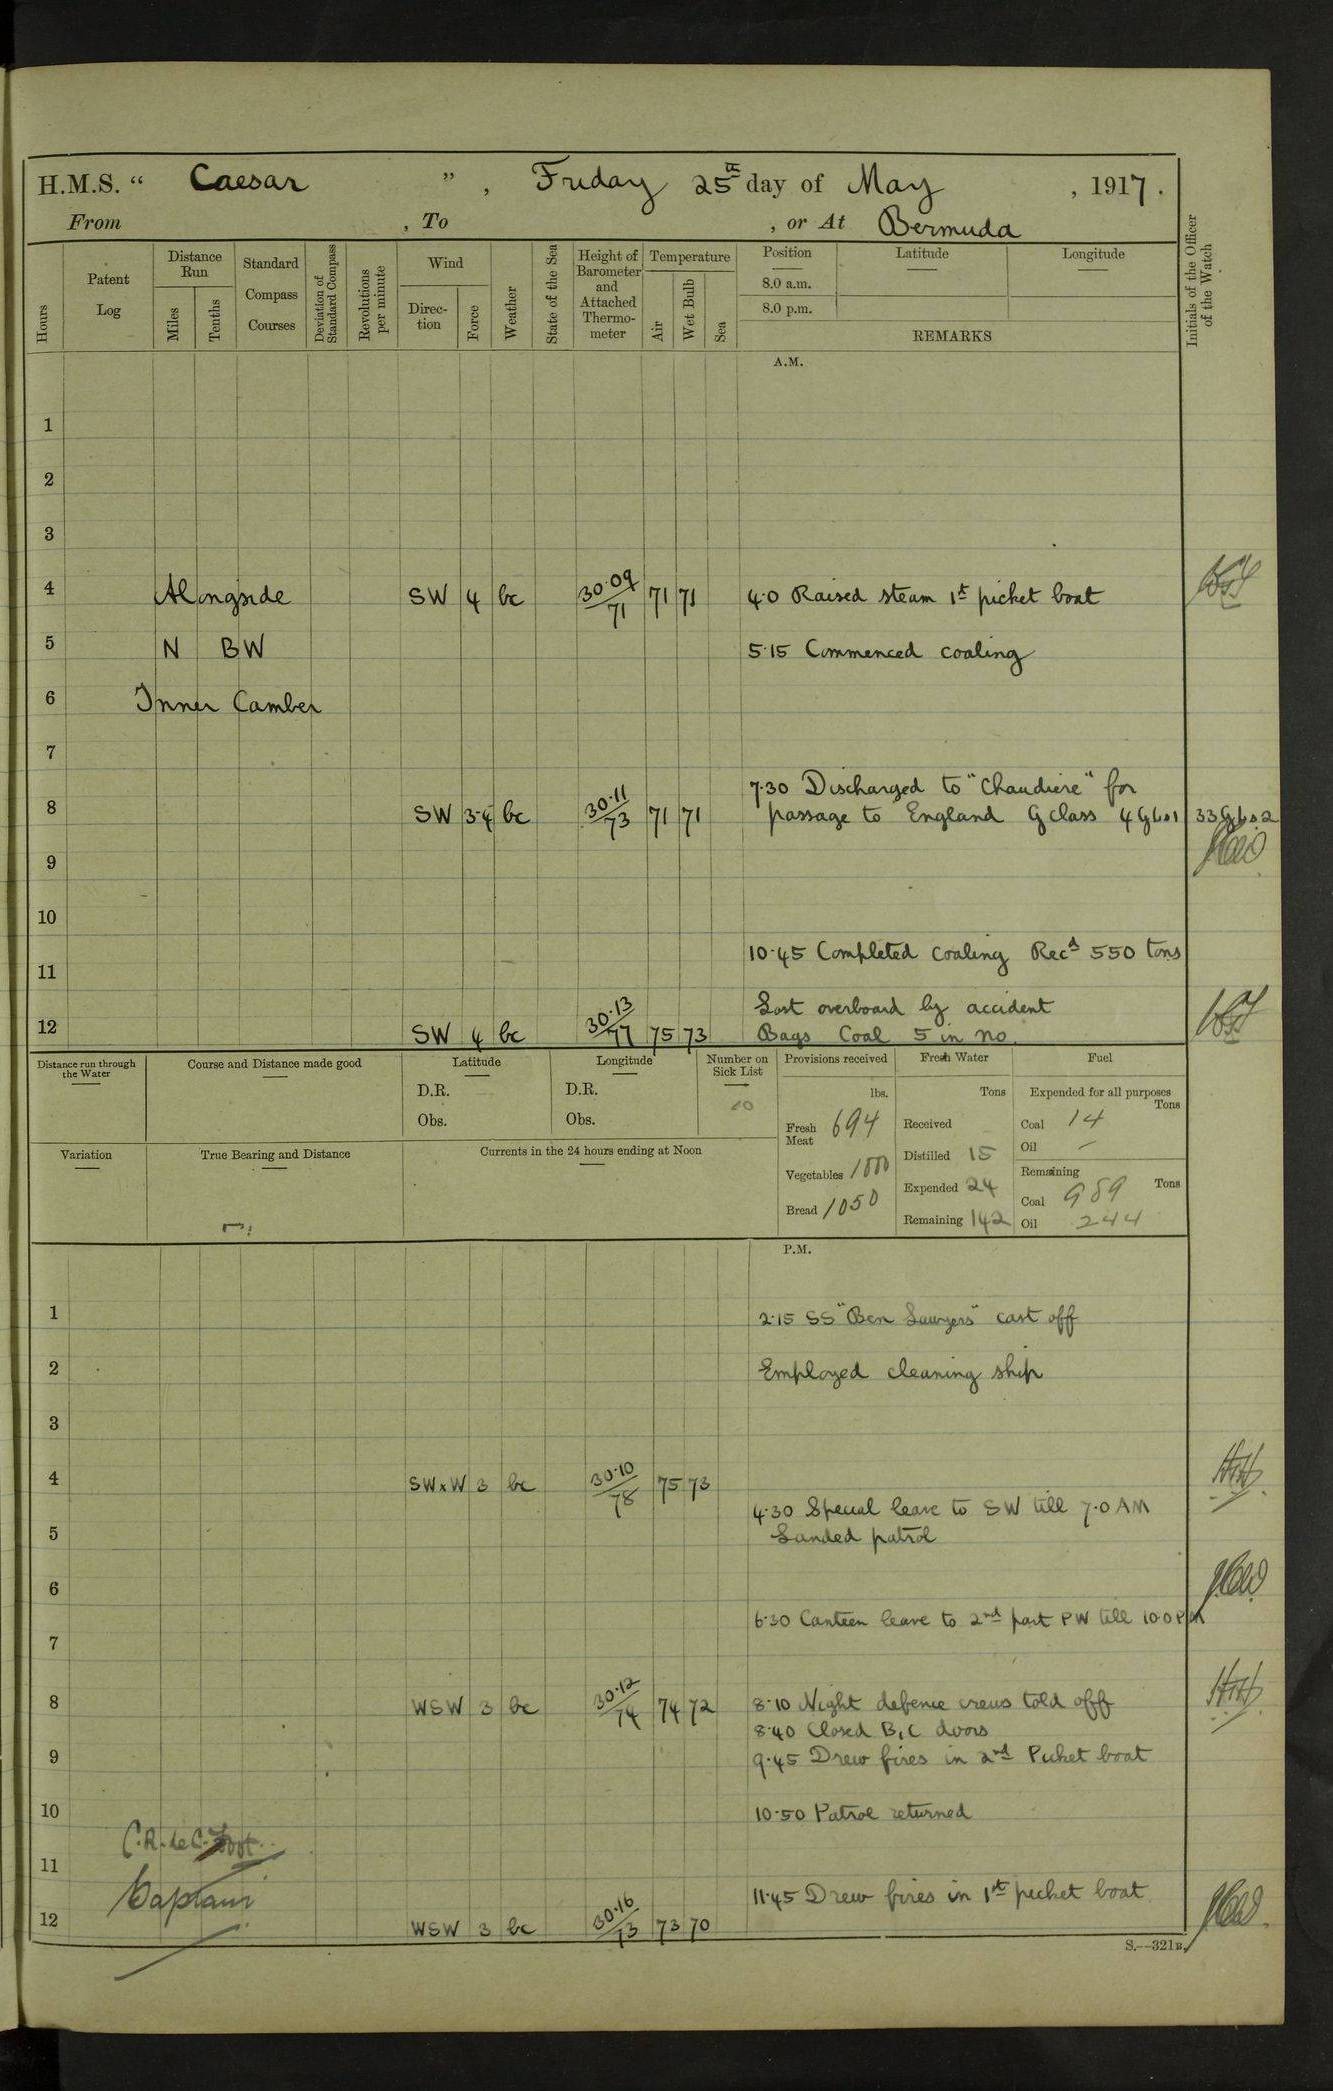 H.M.S. “ Caesar ” , Friday 25th day of May , 1917 .
From , To , or At Bermuda
Hours
Patent Log
Distance Run
Miles
Tenths
Standard Compass Courses
Deviation of Standard Compass
Revolutions per minute
Wind
Direc-tion
Force
Weather
State of the Sea
Height of Barometer and Attached Thermo-meter
Temperature
Air
Wet Bulb
Sea
Position
8.0 a.m.
8.0 p.m.
Latitude
Longitude
REMARKS
Initials of the Officer of the Watch
A.M.
1
2
3
4 Alongside SW 4 bc 30·09/71 71 71 4·0 Raised steam 1st picket boat
5 N B W 5·15 Commenced coaling
6 Inner Camber
7
7·30 Discharged to "Chaudiere" for
8 SW 3-4 bc 30·11/73 71 71 passage to England G class 4 Gbs1 33 Gbs.2
9
10
10·45 Completed coaling Recd 550 tons
11
Lost overboard by accident
12 SW 4 bc 30·13/77 75 73 Bags Coal 5 in no.
Distance run through the Water
Course and Distance made good
Latitude
D.R.
Obs.
Longitude
D.R.
Obs.
Number on Sick List
10
Provisions received
lbs.
Fresh Meat 694
Vegetables 1000
Bread 1050
Fresh Water
Tons
Received
Distilled 15
Expended 24
Remaining 142
Fuel
Expended for all purposes
Tons
Coal 14
Oil –
Remaining
Tons
Coal 989
Oil 244
Variation
True Bearing and Distance
Currents in the 24 hours ending at Noon
P.M.
1 2·15 SS "Ben Sawyers" cast off
2 Employed cleaning ship
3
4 SWxW 3 bc 30·10/78 75 73
4·30 Special leave to SW till 7·0 AM
5 Landed patrol
6
6·30 Canteen leave to 2nd part PW till 10·0 PM
7
8 WSW 3 bc 30·12/74 74 72 8·10 Night defence crews told off
8·40 Closed B, C doors
9 9·45 Drew fires in 2nd Picket boat
10 10·50 Patrol returned
C.R. de C. Foot
11
Captain
11·45 Drew fires in 1st picket boat
12 WSW 3 bc 30·16/73 73 70
S.—321B.